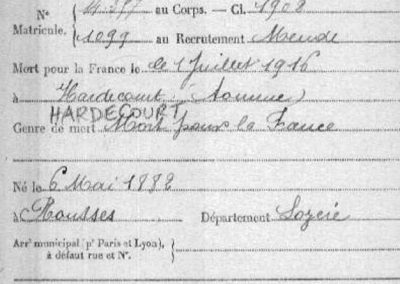 N° 14.277 au Corps. — Cl. 1908
Matricule. 1099 au Recrutement Mende
Mort pour la France le 1 Juillet 1916
à Hardecourt (Somme)
HARDECOURT
Genre de mort Mort pour la France
Né le 6 Mai 1888
à Rousses Département Lozère
Arr' municipal (p' Paris et Lyon),
à défaut rue et N°.